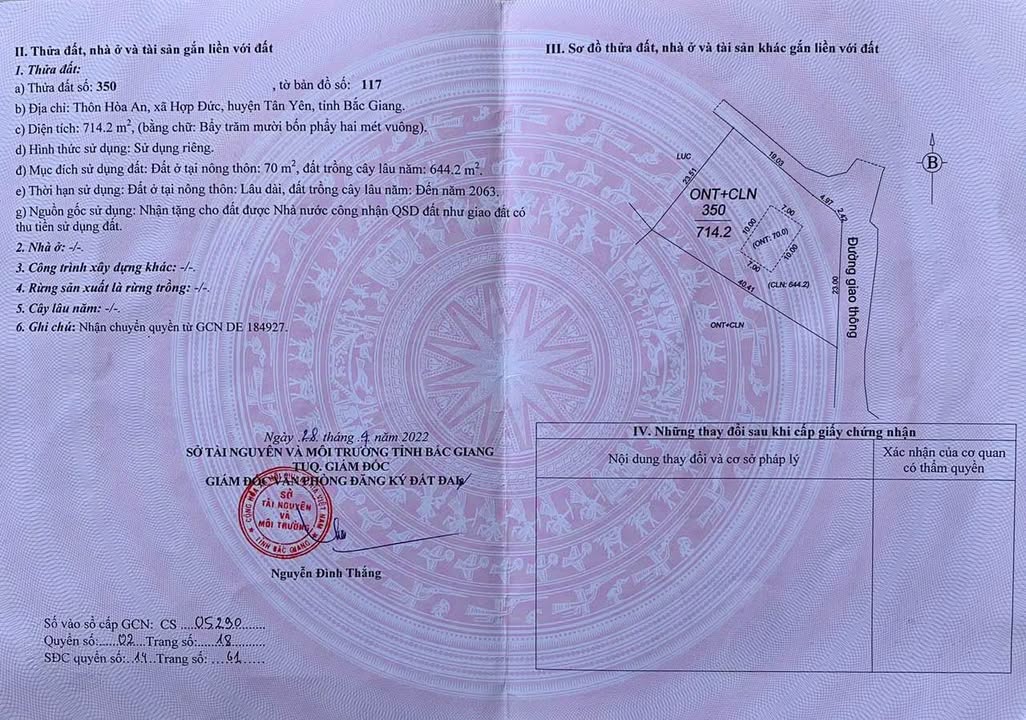 II. Thửa đất, nhà ở và tài sản gắn liền với đất
1. Thửa đất:
a) Thửa đất số: 350 , tờ bản đồ số: 117
b) Địa chỉ: Thôn Hòa An, xã Hợp Đức, huyện Tân Yên, tỉnh Bắc Giang.
c) Diện tích: 714.2 m², (bằng chữ: Bẩy trăm mười bốn phẩy hai mét vuông).
d) Hình thức sử dụng: Sử dụng riêng.
đ) Mục đích sử dụng đất: Đất ở tại nông thôn: 70 m², đất trồng cây lâu năm: 644.2 m².
e) Thời hạn sử dụng: Đất ở tại nông thôn: Lâu dài, đất trồng cây lâu năm: Đến năm 2063.
g) Nguồn gốc sử dụng: Nhận tặng cho đất được Nhà nước công nhận QSD đất như giao đất có
thu tiền sử dụng đất.
2. Nhà ở: -/-.
3. Công trình xây dựng khác: -/-.
4. Rừng sản xuất là rừng trồng: -/-.
5. Cây lâu năm: -/-.
6. Ghi chú: Nhận chuyển quyền từ GCN DE 184927.
Ngày 28 tháng 9 năm 2022
SỞ TÀI NGUYÊN VÀ MÔI TRƯỜNG TỈNH BẮC GIANG
TUQ. GIÁM ĐỐC
GIÁM ĐỐC VĂN PHÒNG ĐĂNG KÝ ĐẤT ĐAI
SỞ
TÀI NGUYÊN
VÀ
MÔI TRƯỜNG
TỈNH BẮC GIANG
Nguyễn Đình Thắng
Số vào sổ cấp GCN: CS ....05290.......
Quyển số:.....02...Trang số:.....18........
SĐC quyển số:..14..Trang số: ....61......
III. Sơ đồ thửa đất, nhà ở và tài sản khác gắn liền với đất
LUC
18.03
23.51
B
ONT+CLN
350
714.2
4.97
2.42
7.00
10.00
(ONT: 70.0)
10.00
7.00
40.41
(CLN: 644.2)
23.00
Đường giao thông
ONT+CLN
IV. Những thay đổi sau khi cấp giấy chứng nhận
Nội dung thay đổi và cơ sở pháp lý
Xác nhận của cơ quan
có thẩm quyền